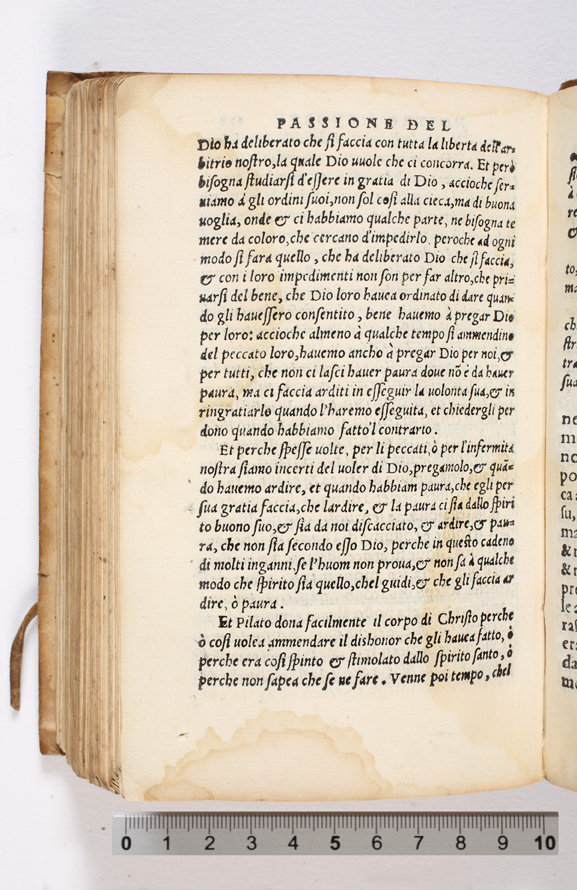 PASSIONE DEL
Dio ha deliberato che si faccia con tutta la liberta dell'ar-
bitrio nostro, la quale Dio vuole che ci concorra. Et però
bisogna studiarsi d'essere in gratia di Dio, accioche ser-
uiamo à gli ordini suoi, non sol così alla cieca, ma di buona
uoglia, onde & ci habbiamo qualche parte, ne bisogna te
mere da coloro, che cercano d'impedirlo. peroche ad ogni
modo si fara quello, che ha deliberato Dio che si faccia,
& con i loro impedimenti non son per far altro, che pri-
uarsi del bene, che Dio loro hauea ordinato di dare quan-
do gli hauessero consentito, bene hauemo à pregar Dio
per loro: accioche almeno à qualche tempo si ammendino
del peccato loro, hauemo ancho à pregar Dio per noi, &
per tutti, che non ci lasci hauer paura doue nõ è da hauer
paura, ma ci faccia arditi in esseguir la uolonta sua, & in
ringratiarlo quando l'haremo esseguita, et chiedergli per
dono quando habbiamo fatto'l contrario.
Et perche spesse uolte, per li peccati, ò per l'infermita
nostra siamo incerti del uoler di Dio, pregamolo, & quã-
do hauemo ardire, et quando habbiam paura, che egli per
sua gratia faccia, che lardire, & la paura ci sia dallo spiri
to buono suo, & sia da noi discacciato, & ardire, & pau-
ra, che non sia secondo esso Dio, perche in questo cadeno
di molti inganni, se l'huom non proua, & non sa à qualche
modo che spirito sia quello, chel guidi, & che gli faccia ar
dire, ò paura.
Et Pilato dona facilmente il corpo di Christo perche
ò così uolea ammendare il dishonor che gli hauea fatto, ò
perche era così spinto & stimolato dallo spirito santo, ò
perche non sapea che se ne fare. Venne poi tempo, chel
0 1 2 3 4 5 6 7 8 9 10